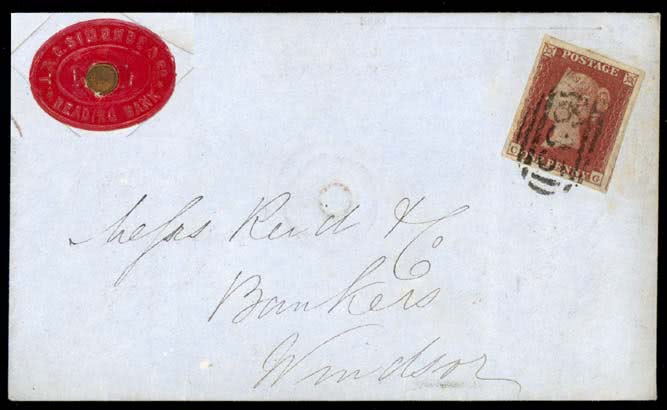 J. & C. SIMONDS & Co.
READING BANK
POSTAGE
C ONE PENNY G
Messrs Reid & Co
Bankers
Windsor